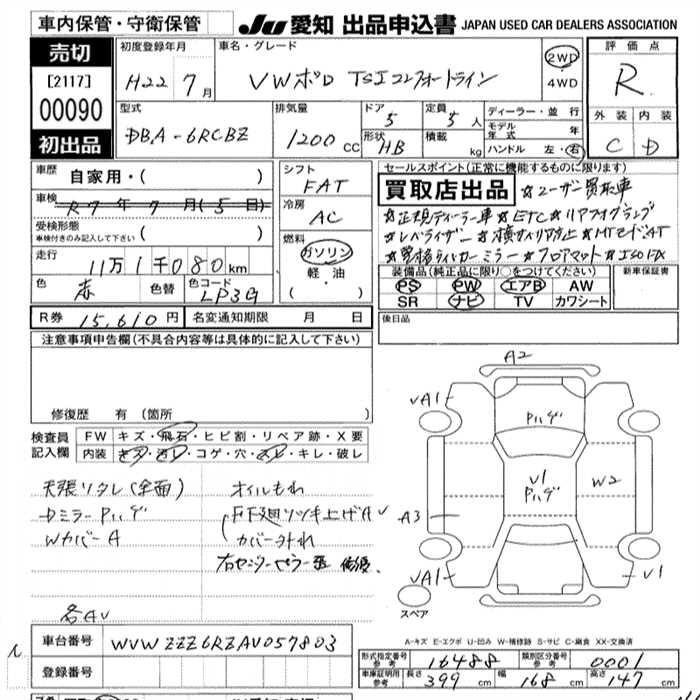 車内保管・守衛保管
JU愛知 出品申込書 JAPAN USED CAR DEALERS ASSOCIATION
売切
[2117]
00090
初出品
初度登録年月
H22年7月
車名・グレード
VWポロ TSIコンフォートライン
2WD
4WD
評価点
R
外装 内装
C D
型式
DBA-6RCBZ
排気量
1200cc
ドア 5
形状 HB
定員 5人
積載 kg
ディーラー・並行
モデル年式 年
ハンドル 左・右
車歴 自家用・( )
車検 R7年7月(5日)
受検形態
車検付きのみ記入して下さい ( )
走行 11万1千080km
色 赤 色替 色コード LP3G
シフト
FAT
冷房
AC
燃料
ガソリン
軽油
( ・ )
セールスポイント(正常に機能するものに限ります)
買取店出品 ☆ユーザー買取車
☆正規ディーラー車 ☆ETC ☆リアフォグランプ
☆レベライザー ☆横すべり防止 ☆MTモードAT
☆ミラー ☆フロアマット ☆ISOFIX
装備品(純正品に限り○をつけてください)
PS PW エアB AW
SR ナビ TV カワシート
新車保証書
R券 15,610円 名変通知期限 月 日
後日品
注意事項申告欄(不具合内容等は具体的に記入して下さい)
修復歴 有(箇所 )
検査員記入欄
FW キズ・飛石・ヒビ割・リペア跡・X要
内装 キズ・汚レ・コゲ・穴・スレ・キレ・破レ
天張リタレ(全面)
DミラーPハゲ
WカバーA
各AV
オイルもれ
F下廻リツキ上げAV
カバー外れ
右センターピラー 修復
A2
VA1
Pハゲ
V1
Pハゲ
W2
A3
VA1
V1
スペア
A-キズ E-エクボ U-凹み W-補修跡 S-サビ C-腐食 XX-交換済
車台番号 WVWZZZ6RZAV057803
登録番号
形式指定番号 参考 16488 類別区分番号 参考 0001
車庫証明用 参考 長さ 399cm 幅 168cm 高さ 147cm